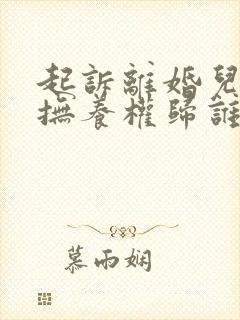 起訴離婚兒
撫養權歸誰
慕雨嫻